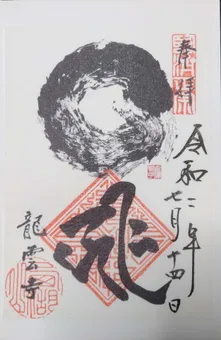 奉拝
令和二年
七月十四日
龍雲寺